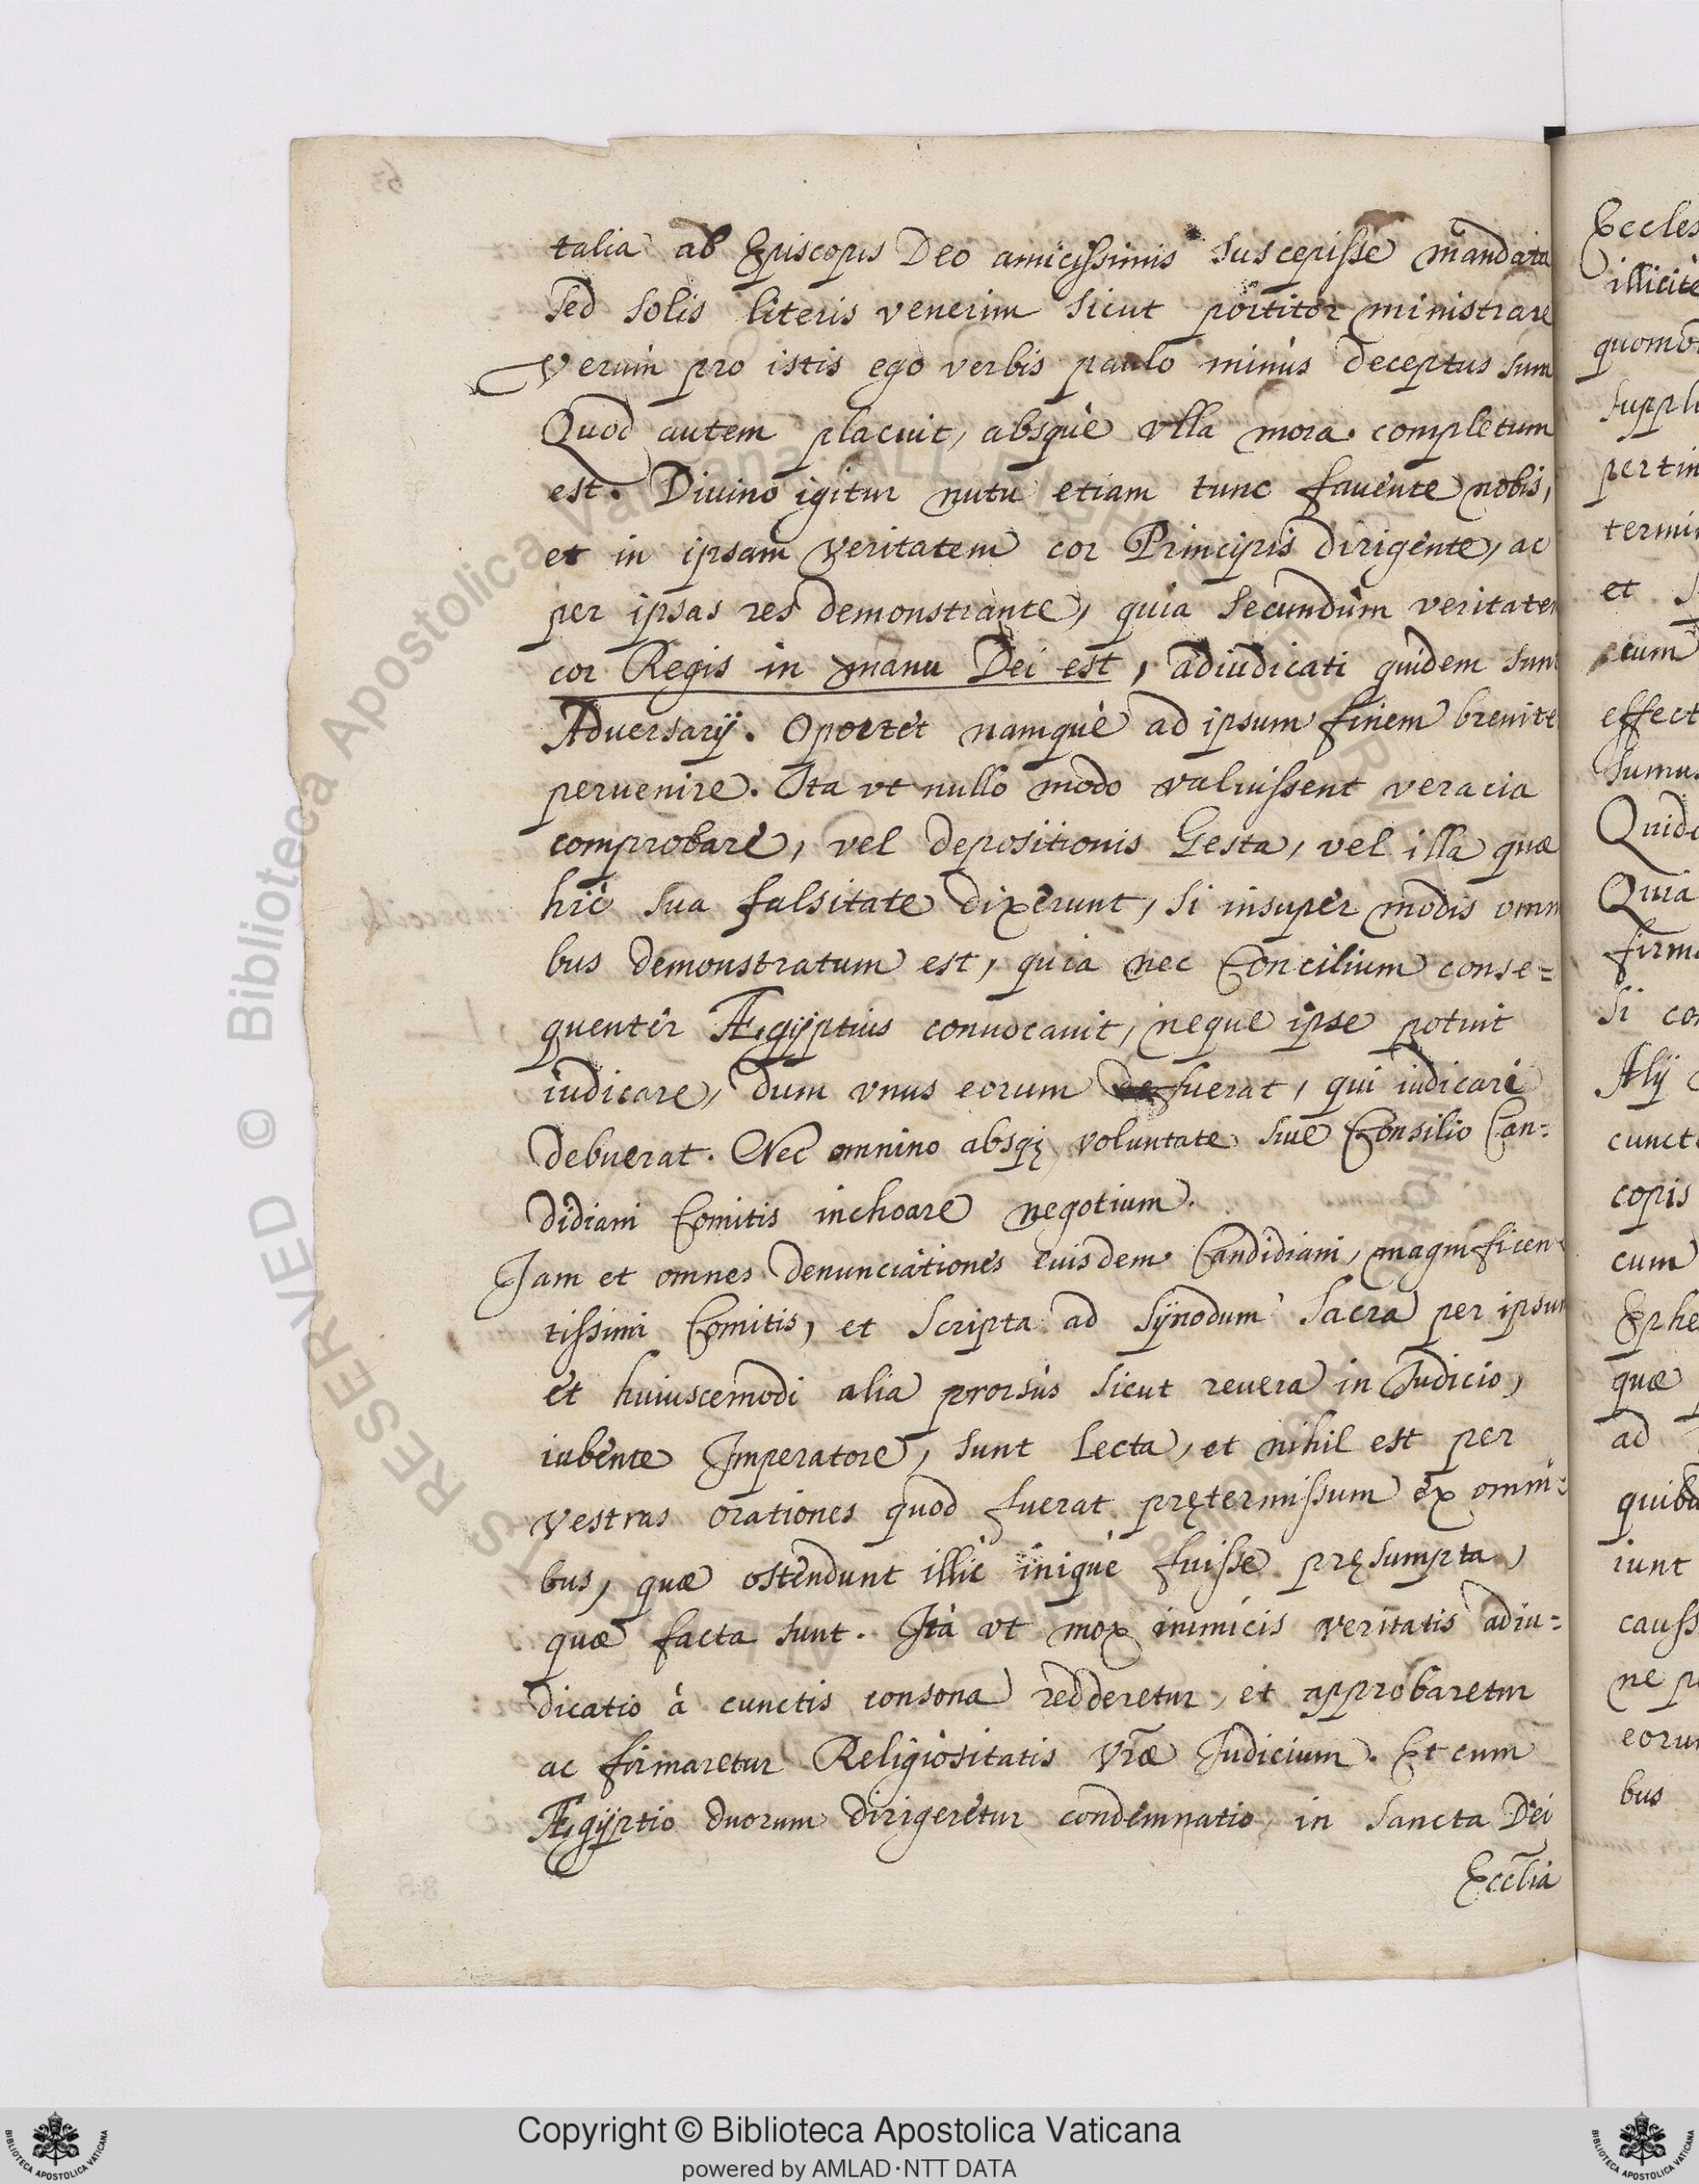 talia ab Episcopis Deo amicissimis suscepisse mandata
sed solis literis venerim sicut portitor ministrare
Verùm pro istis ego verbis paulo minùs deceptus sum
Quod autem placuit, absquè vlla mora completum
est. Diuino igitur nutu etiam tunc fauente nobis,
et in ipsam veritatem cor Principis dirigente, ac
per ipsas res demonstrante, quia secundùm veritatem
cor Regis in manu Dei est, adiudicati quidem sunt
Aduersarij. Oportet namquè ad ipsum finem breuite
peruenire. Ita vt nullo modo valuissent veracia
comprobare, vel depositionis Gesta, vel illa quæ
hìc sua falsitate dixerunt, si insuper modis omn
bus demonstratum est, quia nec Concilium conse=
quentèr Ægÿptius conuocauit, neque ipse potuit
iudicare, dum vnus eorum fuerat, qui iudicari
debuerat. Nec omnino absqȝ voluntate siue Consilio Can=
didiani Comitis inchoare negotium.
Jam et omnes denunciationes euisdem Candidiani, magnificen
tissimi Comitis, et scripta ad Sÿnodum sacra per ipsum
et huiuscemodi alia prorsùs sicut reuera in Iudicio,
iubente Imperatore, sunt lecta, et nihil est per
vestras orationes quod fuerat prętermissum ex omni=
bus, quæ ostendunt illìc iniquè fuisse pręsumpta,
quæ facta sunt. Ità vt mox inimicis veritatis adiu=
dicatio à cunctis consona redderetur, et approbaretur
ac firmaretur Religiositatis Vr̃æ Iudicium. Et cum
Ægÿptio duorum dirigeretur condemnatio in sancta Dei
Eccl̃ia
Eccles
illicitè
quomo
suppli
pertin
termi
et
cum
effect
sumu
Quid
Quia
firm
si co
Alij
cunct
copis
cum
Ephe
quæ
ad
quib
iunt
causs
ne p
eoru
bus
© Biblioteca Apostolica Vaticana ALL RIGHTS RESERVED
Copyright © Biblioteca Apostolica Vaticana
powered by AMLAD·NTT DATA
BIBLIOTECA APOSTOLICA VATICANA
BIBLIOTECA APOSTOLICA VATICANA